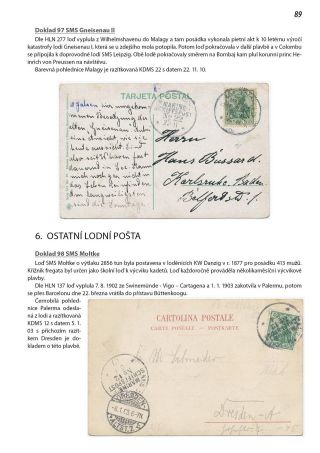 89
Doklad 97 SMS Gneisenau II
Dle HLN 277 loď vyplula z Wilhelmshavenu do Malagy a tam posádka vykonala pietní akt k 10 letému výročí
katastrofy lodi Gneisenau I, která se u zdejšího mola potopila. Potom loď pokračovala v další plavbě a v Colombu
se připojila k doprovodné lodi SMS Leipzig. Obě lodě pokračovaly směrem na Bombaj kam plul korunní princ He-
inrich von Preussen na návštěvu.
Barevná pohlednice Malagy je razítkovaná KDMS 22 s datem 22. 11. 10.
TARJETA POSTAL
Herrn
Hans Bussard.
Karlsruhe. Baden
6. OSTATNÍ LODNÍ POŠTA
Doklad 98 SMS Moltke
Loď SMS Moltke o výtlaku 2856 tun byla postavena v loděnicích KW Danzig v r. 1877 pro posádku 413 mužů.
Křižník fregata byl určen jako školní loď k výcviku kadetů. Loď každoročně prováděla několikaměsíční výcvikové
plavby.
Dle HLN 137 loď vyplula 7. 8. 1902 ze Swinemünde - Vigo – Cartagena a 1. 1. 1903 zakotvila v Palermu, potom
se přes Barcelonu dne 22. března vrátila do přístavu Büttenkoogu.
Černobílá pohled-
nice Palerma odesla-
ná z lodi a razítkovaná
KDMS 12 s datem 5. 1.
03 s příchozím razít-
kem Dresden je do-
kladem o této plavbě.
CARTOLINA POSTALE
CARTE POSTALE — POSTKARTE
Dresden-A